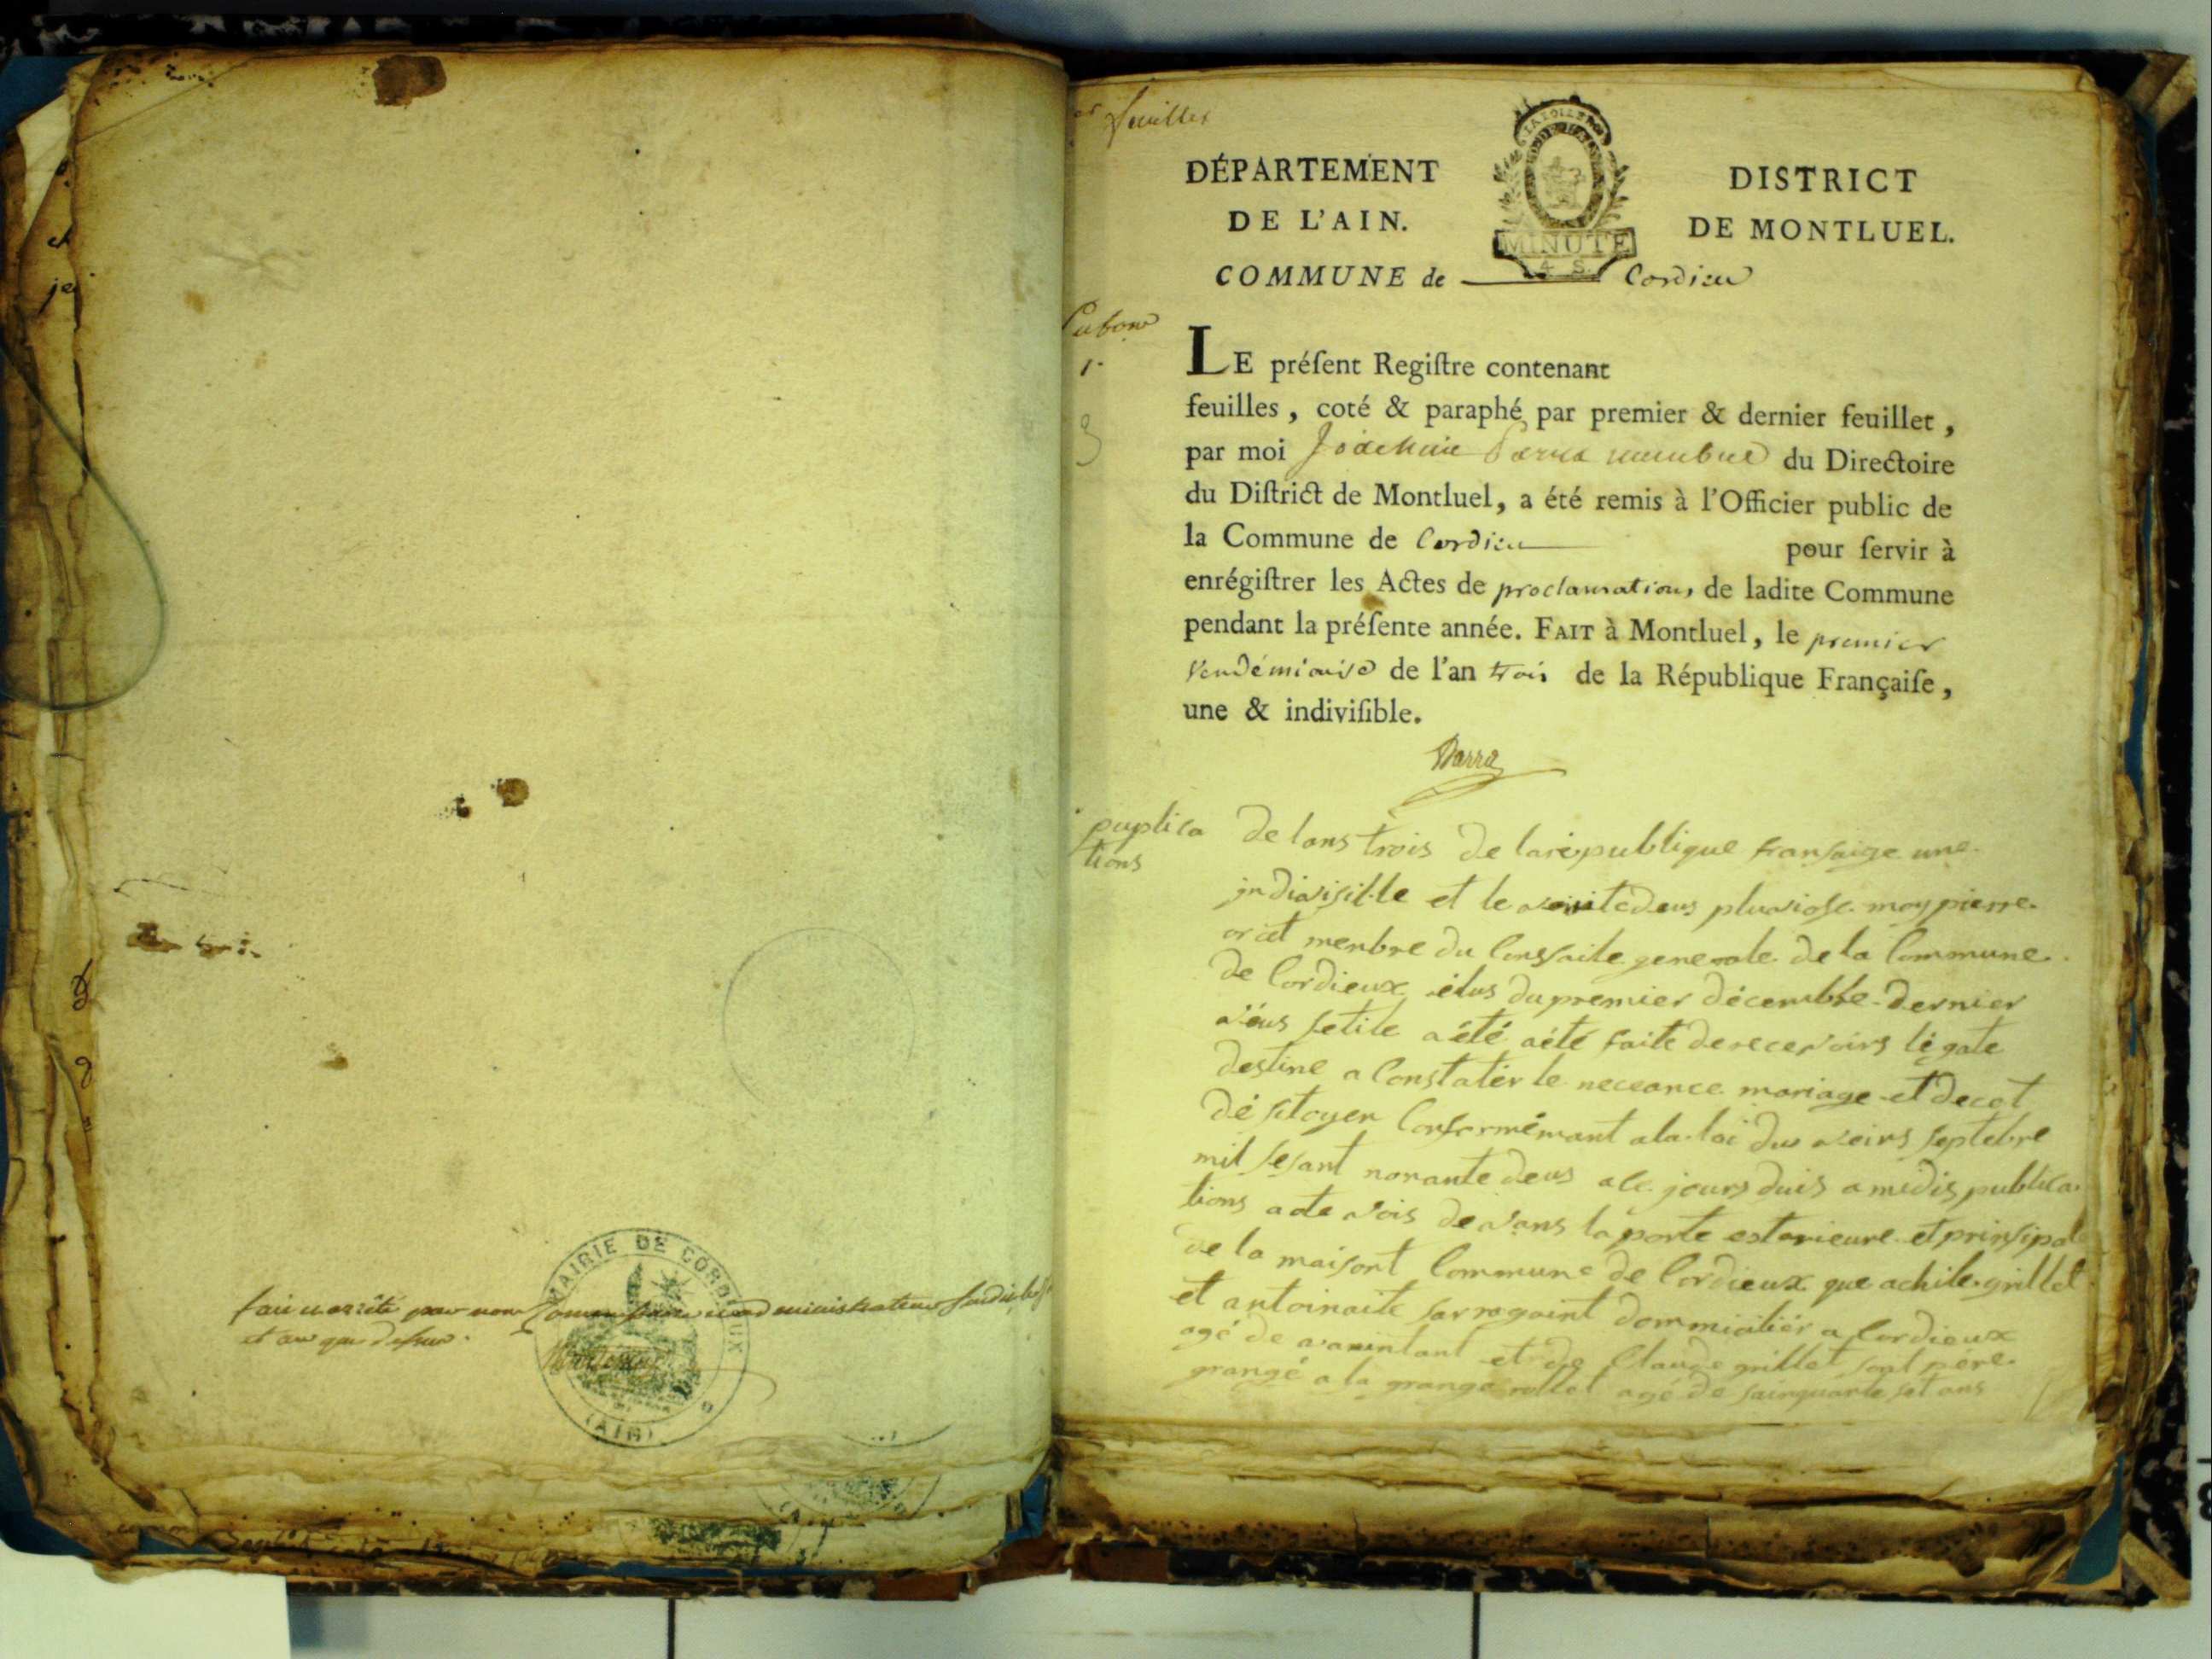 et
je
fait et arrêté par nous
et an que dessus.
MAIRIE DE CORDIEUX
(AIN)
feuilles
DÉPARTEMENT
DE L'AIN.
COMMUNE de Cordieu
LA LOI LE ROI
MINUTE
4 S
DISTRICT
DE MONTLUEL.
1.
3
LE préſent Regiſtre contenant
feuilles, coté & paraphé par premier & dernier feuillet,
par moi Joachim membre du Directoire
du Diſtrict de Montluel, a été remis à l'Officier public de
la Commune de Cordieu pour ſervir à
enrégiſtrer les Actes de proclamations de ladite Commune
pendant la préſente année. FAIT à Montluel, le premier
Vendémiaire de l'an trois de la République Françaiſe,
une & indiviſible.
puplica
tions
de lans trois de la republique fransaige une
indivisible et le vintedeus pluviose moy pierre
membre du Conssaile generale de la Commune
de Cordieux élus du premier décembre dernier
a été aété faite de recevoirs
destine a Constatér le neceance mariage et decet
dé sitoyen Conformémant a la loi dus veins septebre
mil sesant norante deus a ce jours duis a midis publica
tions a ote vois devans la porte esterieure et prinsipal
de la maisont Commune de Cordieux que achile grillet
et antoinaite domiciliér a Cordieux
agé de et de Claude grillet sont pére
grangé a la grange agé de sainquante set ans